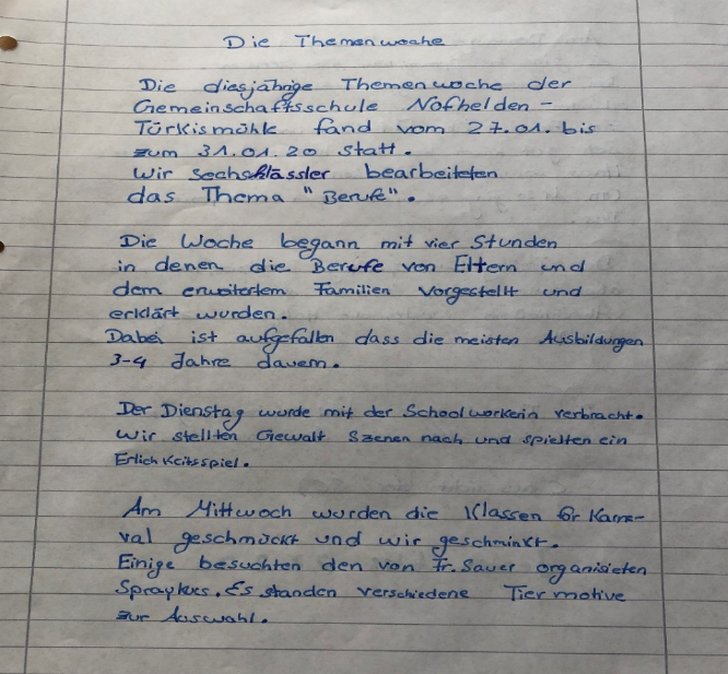 Die Themenwoche
Die diesjährige Themenwoche der
Gemeinschaftsschule Nofhelden -
Türkismühle fand vom 27.01. bis
zum 31.01.20 statt.
Wir Sechsklässler bearbeiteten
das Thema "Berufe".
Die Woche begann mit vier Stunden
in denen die Berufe von Eltern und
dem erweitertem Familien vorgestellt und
erklärt wurden.
Dabei ist aufgefallen dass die meisten Ausbildungen
3-4 Jahre dauern.
Der Dienstag wurde mit der Schoolworkerin verbracht.
Wir stellten Gewalt Szenen nach und spielten ein
Erlichkeitsspiel.
Am Mittwoch wurden die Klassen für Karne-
val geschmückt und wir geschminkt.
Einige besuchten den von Fr. Sauer organisieten
Spraykurs. Es standen verschiedene Tiermotive
zur Auswahl.